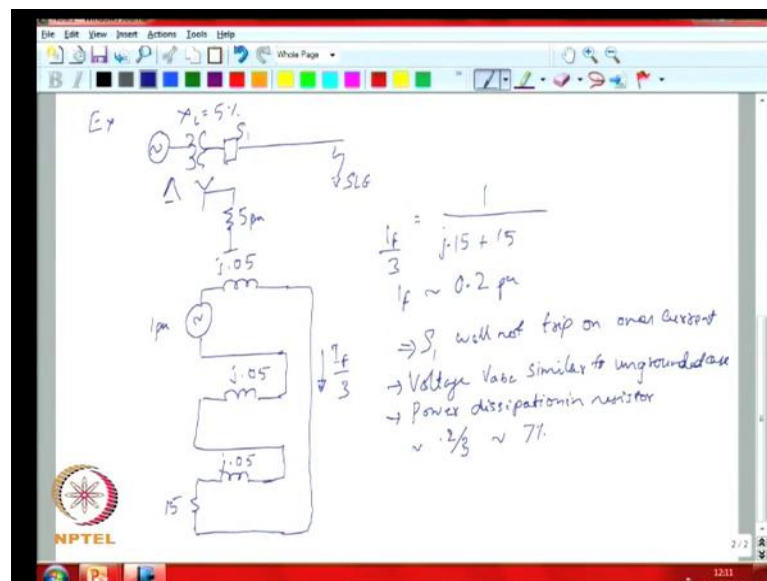 File Edit View Insert Actions Tools Help
Whole Page
B I
Ex
x_L = 5%
S₁
SLG
Δ Y
5 pu
j.05
1 pu
I_f/3
j.05
j.05
15
I_f/3 = 1/(j.15 + 15)
I_f ~ 0.2 pu
⇒ S₁ will not trip on over current
→ Voltage Vabc similar to ungrounded case
→ Power dissipation in resistor
~ .2/3 ~ 7%
NPTEL
2/2
12:11